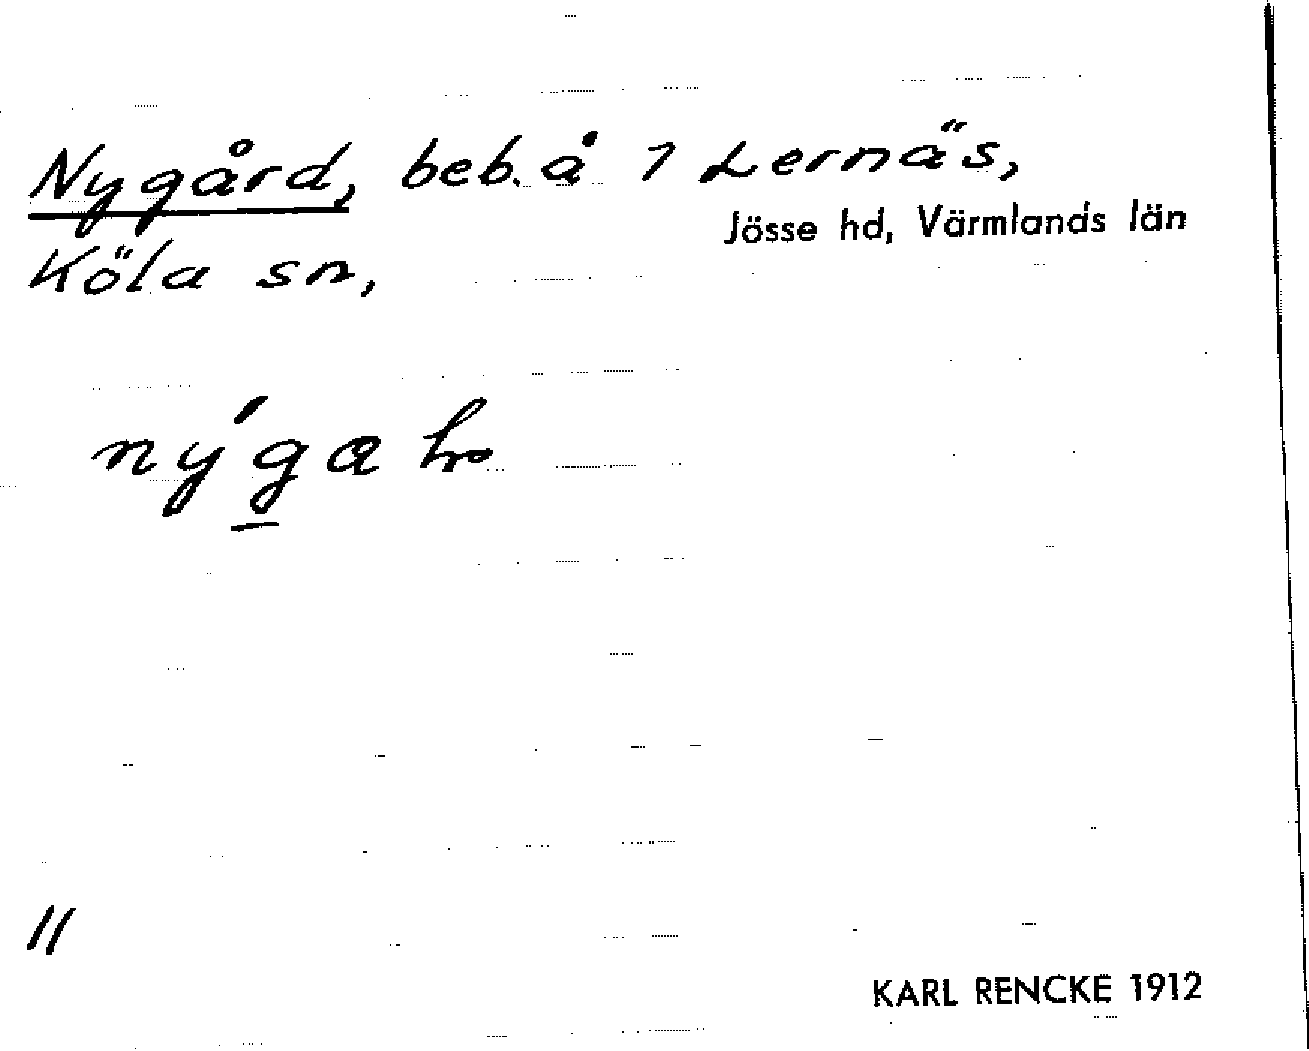 Nygård, beb. å 1 Lernäs,
Jösse hd, Värmlands län
Köla sn,
11
KARL RENCKE 1912